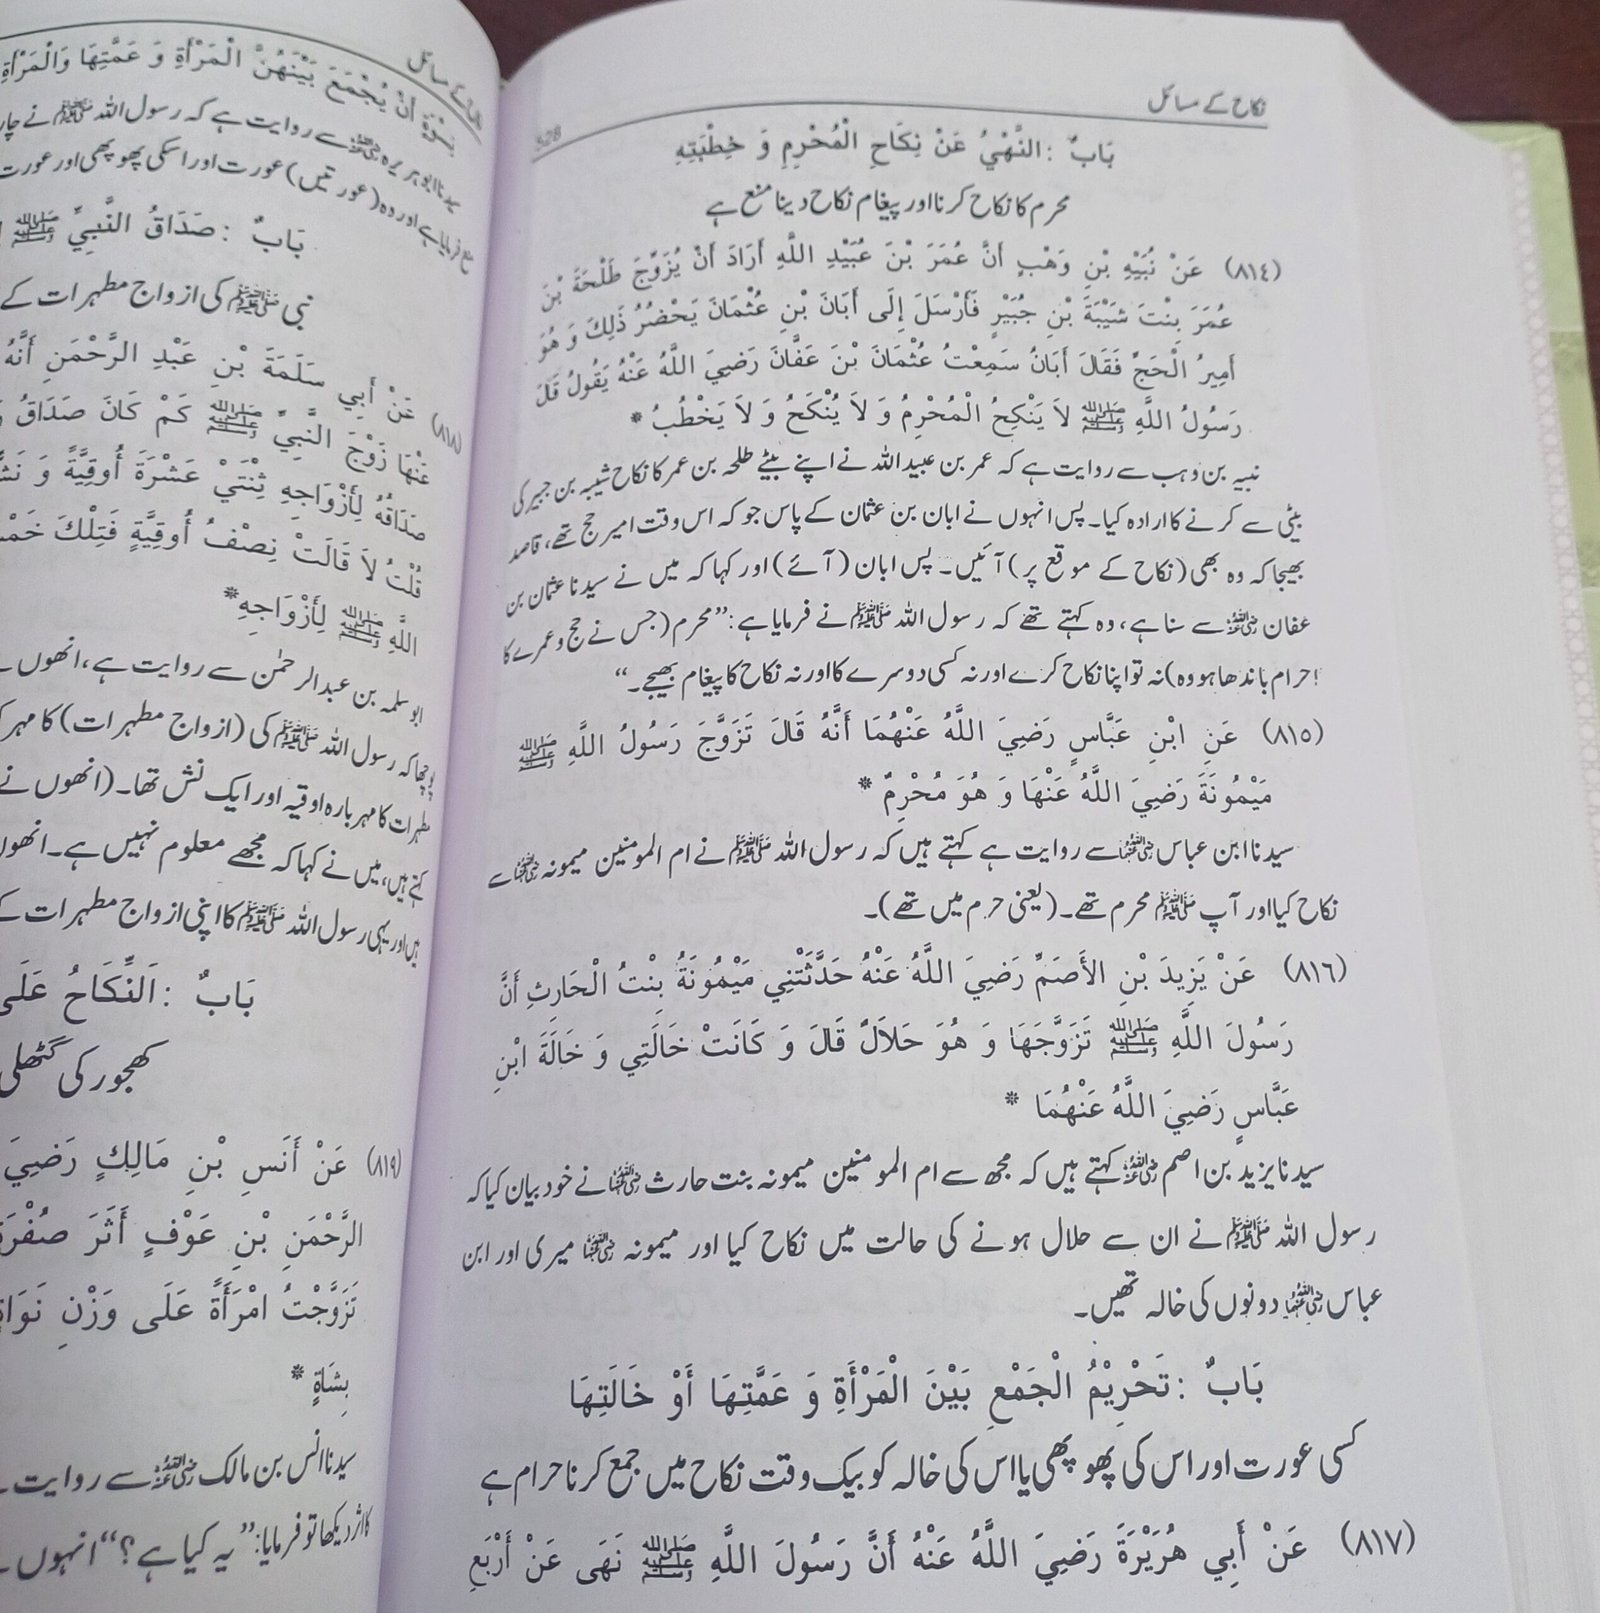 نکاح کے مسائل
528
بَابٌ : النَّهْيُ عَنْ نِكَاحِ الْمُحْرِمِ وَ خِطْبَتِهِ
محرم کا نکاح کرنا اور پیغام نکاح دینا منع ہے
(٨١٤) عَنْ نُبَيْهِ بْنِ وَهْبٍ أَنَّ عُمَرَ بْنَ عُبَيْدِ اللَّهِ أَرَادَ أَنْ يُزَوِّجَ طَلْحَةَ بْنَ
عُمَرَ بِنْتَ شَيْبَةَ بْنِ جُبَيْرٍ فَأَرْسَلَ إِلَى أَبَانَ بْنِ عُثْمَانَ يَحْضُرُ ذَلِكَ وَ هُوَ
أَمِيرُ الْحَجِّ فَقَالَ أَبَانُ سَمِعْتُ عُثْمَانَ بْنَ عَفَّانَ رَضِيَ اللَّهُ عَنْهُ يَقُولُ قَالَ
رَسُولُ اللَّهِ ﷺ لاَ يَنْكِحُ الْمُحْرِمُ وَ لاَ يُنْكَحُ وَ لاَ يَخْطُبُ *
نبیہ بن وہب سے روایت ہے کہ عمر بن عبید اللہ نے اپنے بیٹے طلحہ بن عمر کا نکاح شیبہ بن جبیر کی
بیٹی سے کرنے کا ارادہ کیا۔ پس انہوں نے ابان بن عثمان کے پاس جو کہ اس وقت امیر حج تھے، قاصد
بھیجا کہ وہ بھی (نکاح کے موقع پر) آئیں۔ پس ابان (آئے) اور کہا کہ میں نے سیدنا عثمان بن
عفان رضی اللہ عنہ سے سنا ہے، وہ کہتے تھے کہ رسول اللہ ﷺ نے فرمایا ہے: ”محرم (جس نے حج و عمرے کا
احرام باندھا ہو وہ) نہ تو اپنا نکاح کرے اور نہ کسی دوسرے کا اور نہ نکاح کا پیغام بھیجے۔“
(٨١٥) عَنِ ابْنِ عَبَّاسٍ رَضِيَ اللَّهُ عَنْهُمَا أَنَّهُ قَالَ تَزَوَّجَ رَسُولُ اللَّهِ ﷺ
مَيْمُونَةَ رَضِيَ اللَّهُ عَنْهَا وَ هُوَ مُحْرِمٌ *
سیدنا ابن عباس رضی اللہ عنہما سے روایت ہے کہتے ہیں کہ رسول اللہ ﷺ نے ام المومنین میمونہ رضی اللہ عنہا سے
نکاح کیا اور آپ ﷺ محرم تھے۔ (یعنی حرم میں تھے)۔
(٨١٦) عَنْ يَزِيدَ بْنِ الأَصَمِّ رَضِيَ اللَّهُ عَنْهُ حَدَّثَتْنِي مَيْمُونَةُ بِنْتُ الْحَارِثِ أَنَّ
رَسُولَ اللَّهِ ﷺ تَزَوَّجَهَا وَ هُوَ حَلاَلٌ قَالَ وَ كَانَتْ خَالَتِي وَ خَالَةَ ابْنِ
عَبَّاسٍ رَضِيَ اللَّهُ عَنْهُمَا *
سیدنا یزید بن اصم رضی اللہ عنہ کہتے ہیں کہ مجھ سے ام المومنین میمونہ بنت حارث رضی اللہ عنہا نے خود بیان کیا کہ
رسول اللہ ﷺ نے ان سے حلال ہونے کی حالت میں نکاح کیا اور میمونہ رضی اللہ عنہا میری اور ابن
عباس رضی اللہ عنہما دونوں کی خالہ تھیں۔
بَابٌ : تَحْرِيْمُ الْجَمْعِ بَيْنَ الْمَرْأَةِ وَ عَمَّتِهَا أَوْ خَالَتِهَا
کسی عورت اور اس کی پھوپھی یا اس کی خالہ کو بیک وقت نکاح میں جمع کرنا حرام ہے
(٨١٧) عَنْ أَبِي هُرَيْرَةَ رَضِيَ اللَّهُ عَنْهُ أَنَّ رَسُولَ اللَّهِ ﷺ نَهَى عَنْ أَرْبَعِ
کے مسائل
نِسْوَةٍ أَنْ يُجْمَعَ بَيْنَهُنَّ الْمَرْأَةِ وَ عَمَّتِهَا وَالْمَرْأَةِ
سیدنا ابو ہریرہ رضی اللہ عنہ سے روایت ہے کہ رسول اللہ ﷺ نے چار
منع فرمایا ہے اور وہ (عورتیں) عورت اور اسکی پھوپھی اور عورت
بَابٌ : صَدَاقُ النَّبِيِّ ﷺ
نبی ﷺ کی ازواج مطہرات کے
(٨١٨) عَنْ أَبِي سَلَمَةَ بْنِ عَبْدِ الرَّحْمَنِ أَنَّهُ
عَنْهَا زَوْجَ النَّبِيِّ ﷺ كَمْ كَانَ صَدَاقُ
صَدَاقُهُ لِأَزْوَاجِهِ ثِنْتَيْ عَشْرَةَ أُوقِيَّةً وَ
قُلْتُ لاَ قَالَتْ نِصْفُ أُوقِيَّةٍ فَتِلْكَ
اللَّهِ ﷺ لِأَزْوَاجِهِ*
ابو سلمہ بن عبدالرحمٰن سے روایت ہے، انھوں
پوچھا کہ رسول اللہ ﷺ کی (ازواج مطہرات) کا مہر
مطہرات کا مہر بارہ اوقیہ اور ایک نش تھا۔ (انھوں نے
کہتے ہیں، میں نے کہا کہ مجھے معلوم نہیں ہے۔ انھوں
ہیں اور یہی رسول اللہ ﷺ کا اپنی ازواج مطہرات کے
بَابٌ : اَلنِّكَاحُ عَلَى
کھجور کی گٹھلی
(٨١٩) عَنْ أَنَسِ بْنِ مَالِكٍ رَضِيَ
الرَّحْمَنِ بْنِ عَوْفٍ أَثَرَ صُفْرَةٍ
تَزَوَّجْتُ امْرَأَةً عَلَى وَزْنِ نَوَاةٍ
بِشَاةٍ *
سیدنا انس بن مالک رضی اللہ عنہ سے روایت
کا اثر دیکھا تو فرمایا: ”یہ کیا ہے؟“ انہوں